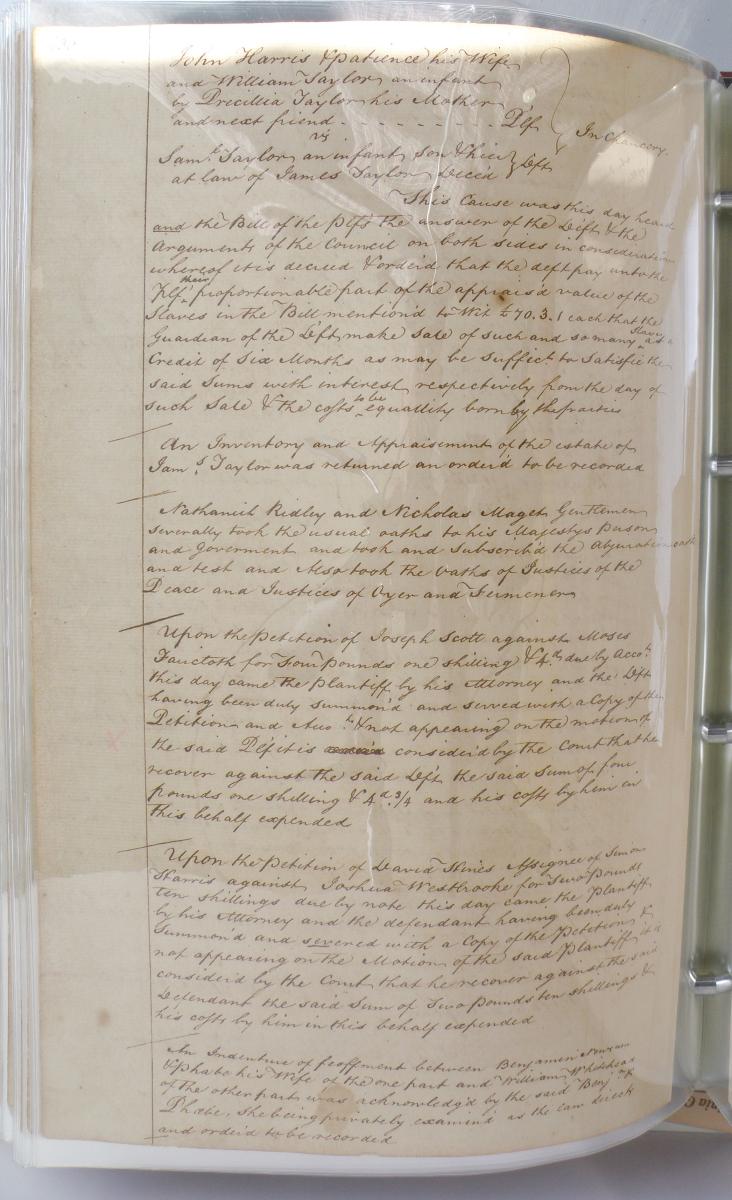 John Harris & Patience his Wife
and William Taylor an infant
by Precillia Taylor his Mother
and next friend - - - - - - - - Plf
In Chancery
vs
Saml. Taylor an infant Son & hier
at law of James Taylor Deced Deft
This Cause was this day heard
and the Bill of the Plfs the answer of the Deft & the
Arguments of the Council on both sides in consideration
whereof it is decreed & orderd that the deft pay unto the
Plf their proportionable part of the apprais'd value of the
Slaves in the Bill mention'd to Wit £70.3.1 each that the
Guardian of the Deft make Sale of such and so many slaves at a
Credit of Six Months as may be suffect to Satisfie the
said Sums with interest respectively from the day of
such Sale & the costs to be equallity born by the parties
An Inventory and Appraisement of the estate of
Jams. Taylor was returned an order'd to be recorded
Nathaniel Ridley and Nicholas Maget Gentlemen
severally took the usual oaths to his Majestys Person
and Goverment and took and Subscrib'd the Abjuration oath
and test and Also took the Oaths of Justices of the
Peace and Justices of Oyer and Terminer
Upon the Petition of Joseph Scott against Moses
Faircloth for Four Pounds one shilling & 4d. due by Accot.
this day came the Plantiff by his Attorney and the Deft
having been duly summon'd and served with a Copy of the
Petition and Acco.t & not appearing on the motion of
the said Plf it is consider'd by the Court that he
recover against the said Deft the said Sum of four
pounds one shilling & 4d.3/4 and his costs by him in
this behalf expended
Upon the Petition of David Hines Assignee of Simon
Harris against Joshua Westbrooke for Two Pounds
ten shillings due by note this day came the Plantiff
by his Attorney and the defendant having been duly
Summon'd and severed with a Copy of the Petition &
not appearing on the Motion of the said Plantiff it is
consider'd by the Court that he recover against the said
Defendant the said Sum of Two pounds ten shillings &
his costs by him in this behalf expended
An Indenture of feoffment between Benjamin
& Phabe his Wife of the one part and William Whitehead
of the other part was acknowledg'd by the said Benj. &
Phabe, She being privately examin'd as the law
and order'd to be recorded